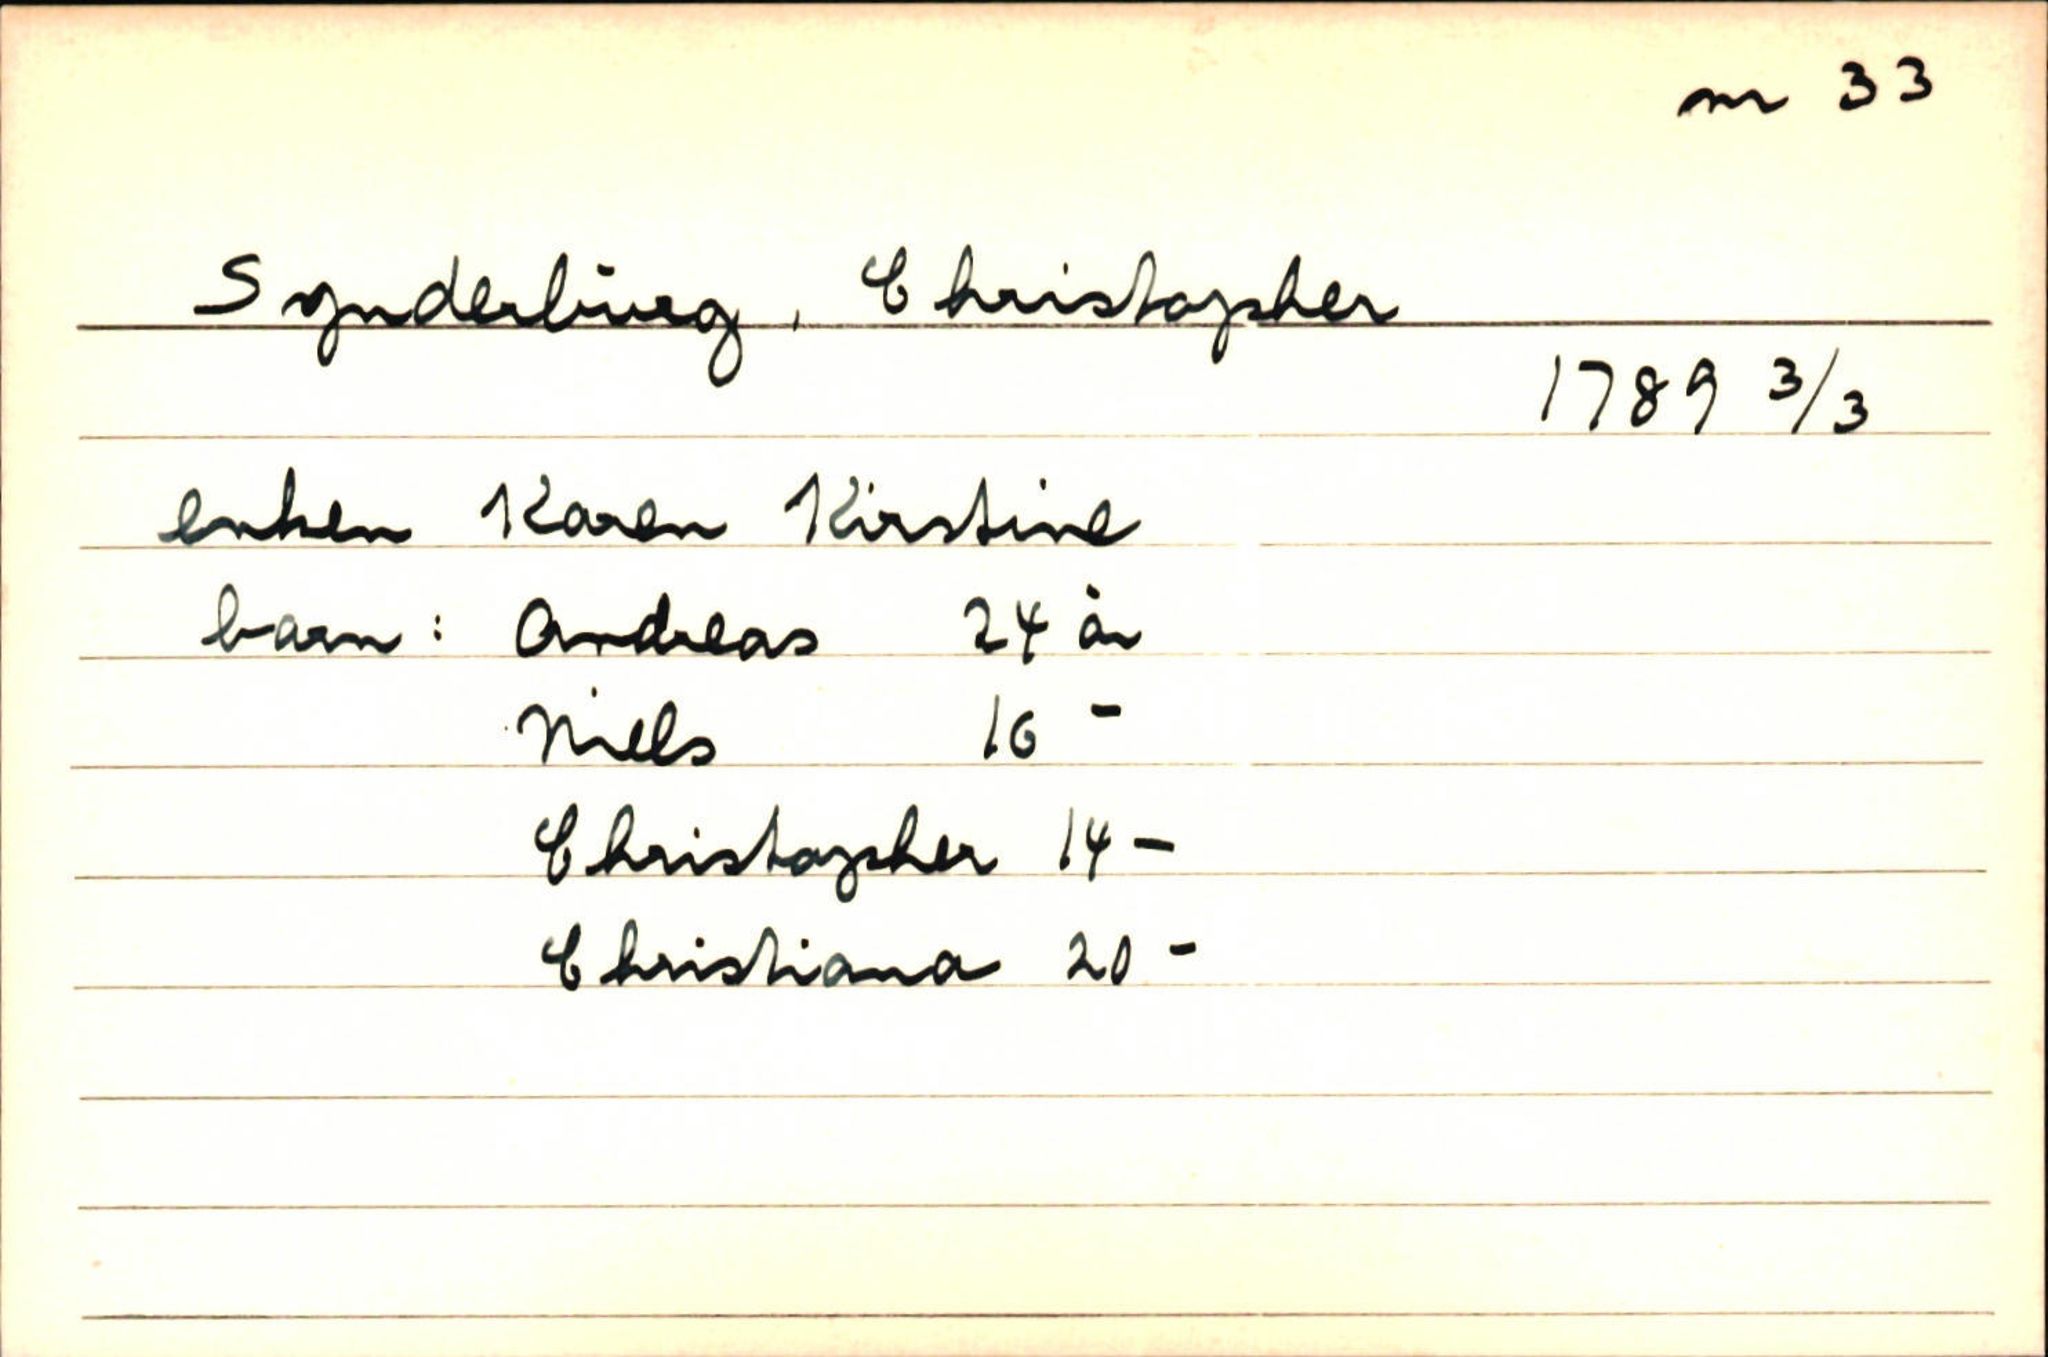 nr 33
Synderburg, Christopher
1789 3/3
enken Karen Kirstine
barn: Andreas 24 år
Niels 16 -
Christopher 14 -
Christiana 20 -